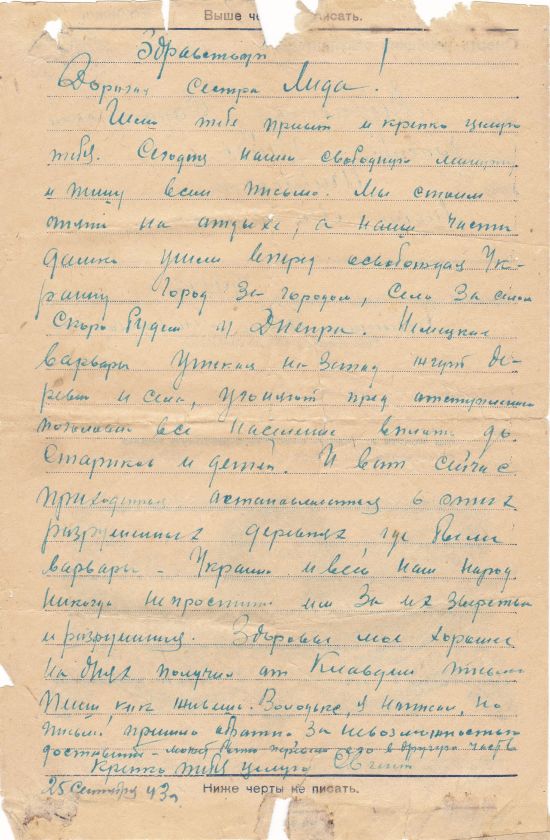 Выше че писать.
Здравствуй
Дорогая сестра Лида!
Шлю тебе привет и крепко целую
тебя. Сегодня нашел свободную минутку
и пишу всем письмо. Мы стоим
опять на атдыхе, а наши части
далико ушли вперед освобождая Ук-
раину Город за городом, село за селом
Скоро будем у Днепра. Немецкие
варвары утекая на запад жгут де-
ревни и села, угоняют пред отступлением
поголовно все население вплоть до
стариков и детей. И вот сейчас
приходится астанавливатся в этих
разрушинных деревнях где были
варвары - Украина и весь наш народ
никогда не простит им за их зверства
и разрушиния. Здоровье мое хорошие
на днях получил от Клавдии письмо
Пиши как живешь. Володьке я написал, но
письмо пришло обратно за невозможностью
доставить - может быть перевели его в другую часть
Крепко тебя целую Евгений
25 Сентября 43 г.
Ниже черты не писать.